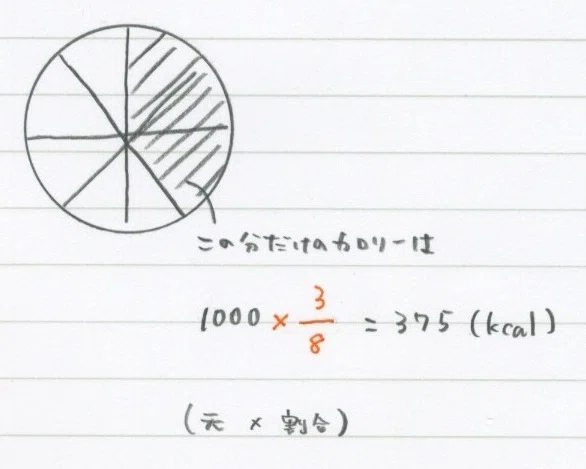 この分だけのカロリーは
1000 × 3/8 = 375 (kcal)
(元 × 割合)